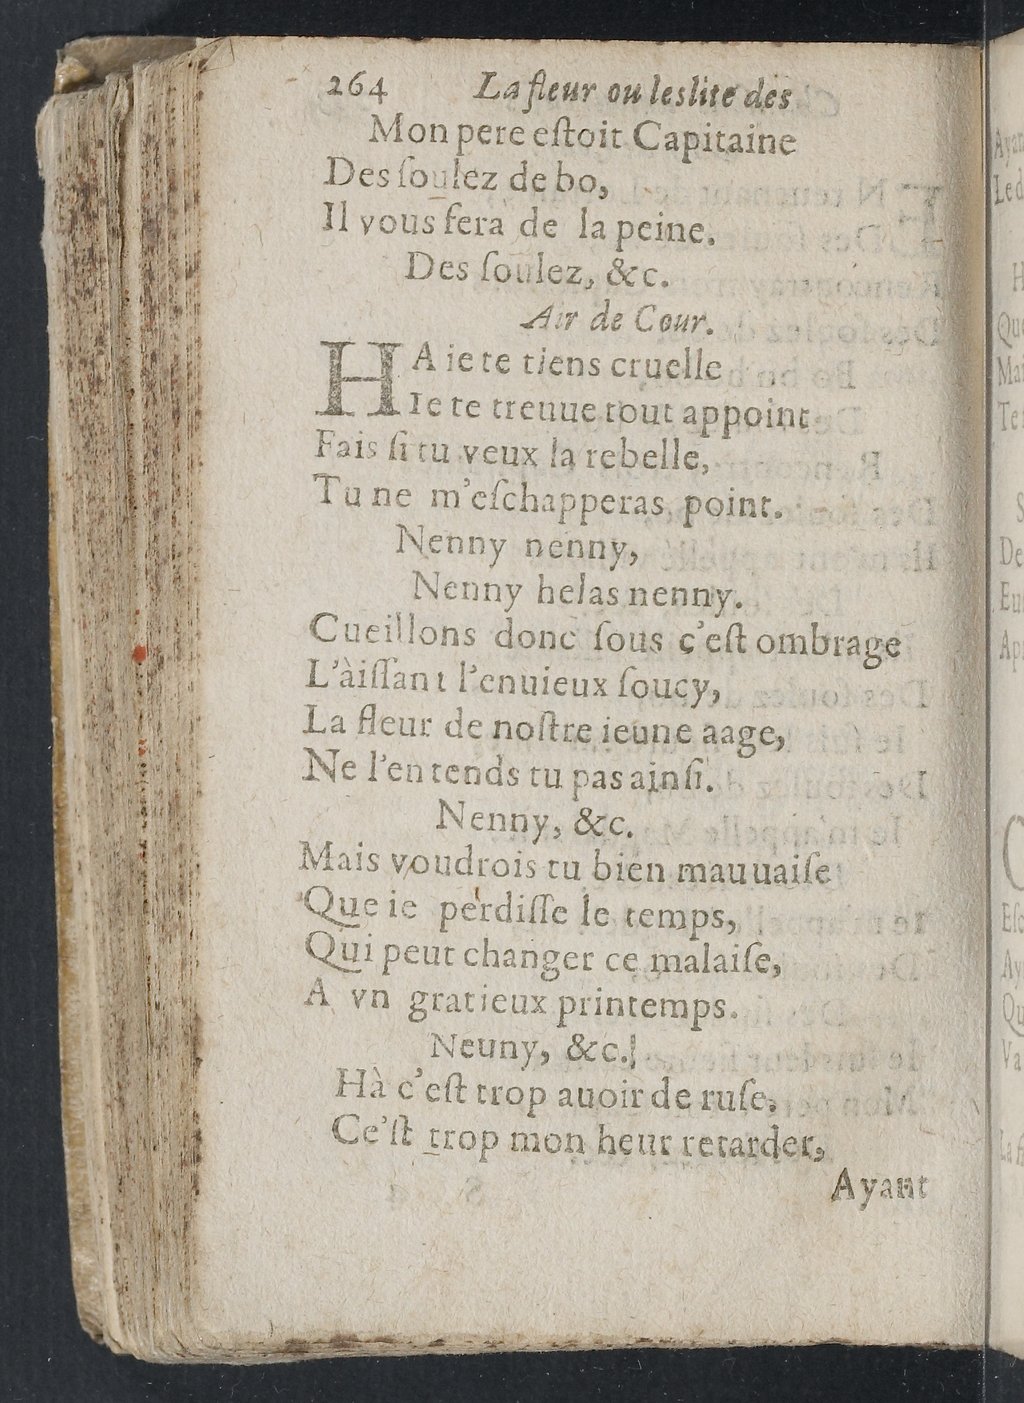 264 La fleur ou leslite des
Mon pere eſtoit Capitaine
Des ſoulez de bo,
Il vous fera de la peine.
Des ſoulez, &c.
Air de Cour.
HA ie te tiens cruelle
Ie te treuue tout appoint
Fais ſi tu veux la rebelle,
Tu ne m'eſchapperas point.
Nenny nenny,
Nenny helas nenny.
Cueillons donc ſous c'eſt ombrage
L'àiſſant l'enuieux ſoucy,
La fleur de noſtre ieune aage,
Ne l'entends tu pas ainſi.
Nenny, &c.
Mais voudrois tu bien mauuaiſe
Que ie perdiſſe le temps,
Qui peut changer ce malaiſe,
A vn gratieux printemps.
Neuny, &c.
Hà c'eſt trop auoir de ruſe,
Ce'ſt trop mon heur retarder,
Ayant